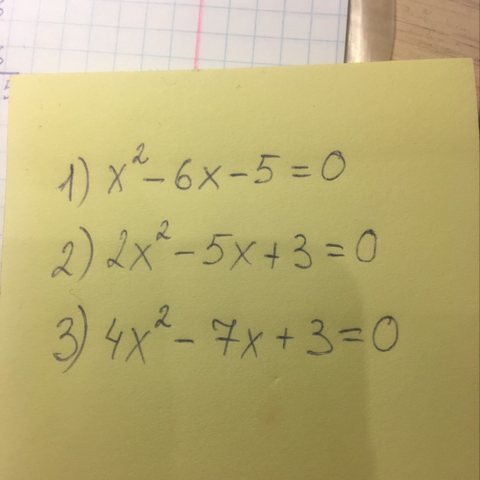 1) x² - 6x - 5 = 0
2) 2x² - 5x + 3 = 0
3) 4x² - 7x + 3 = 0